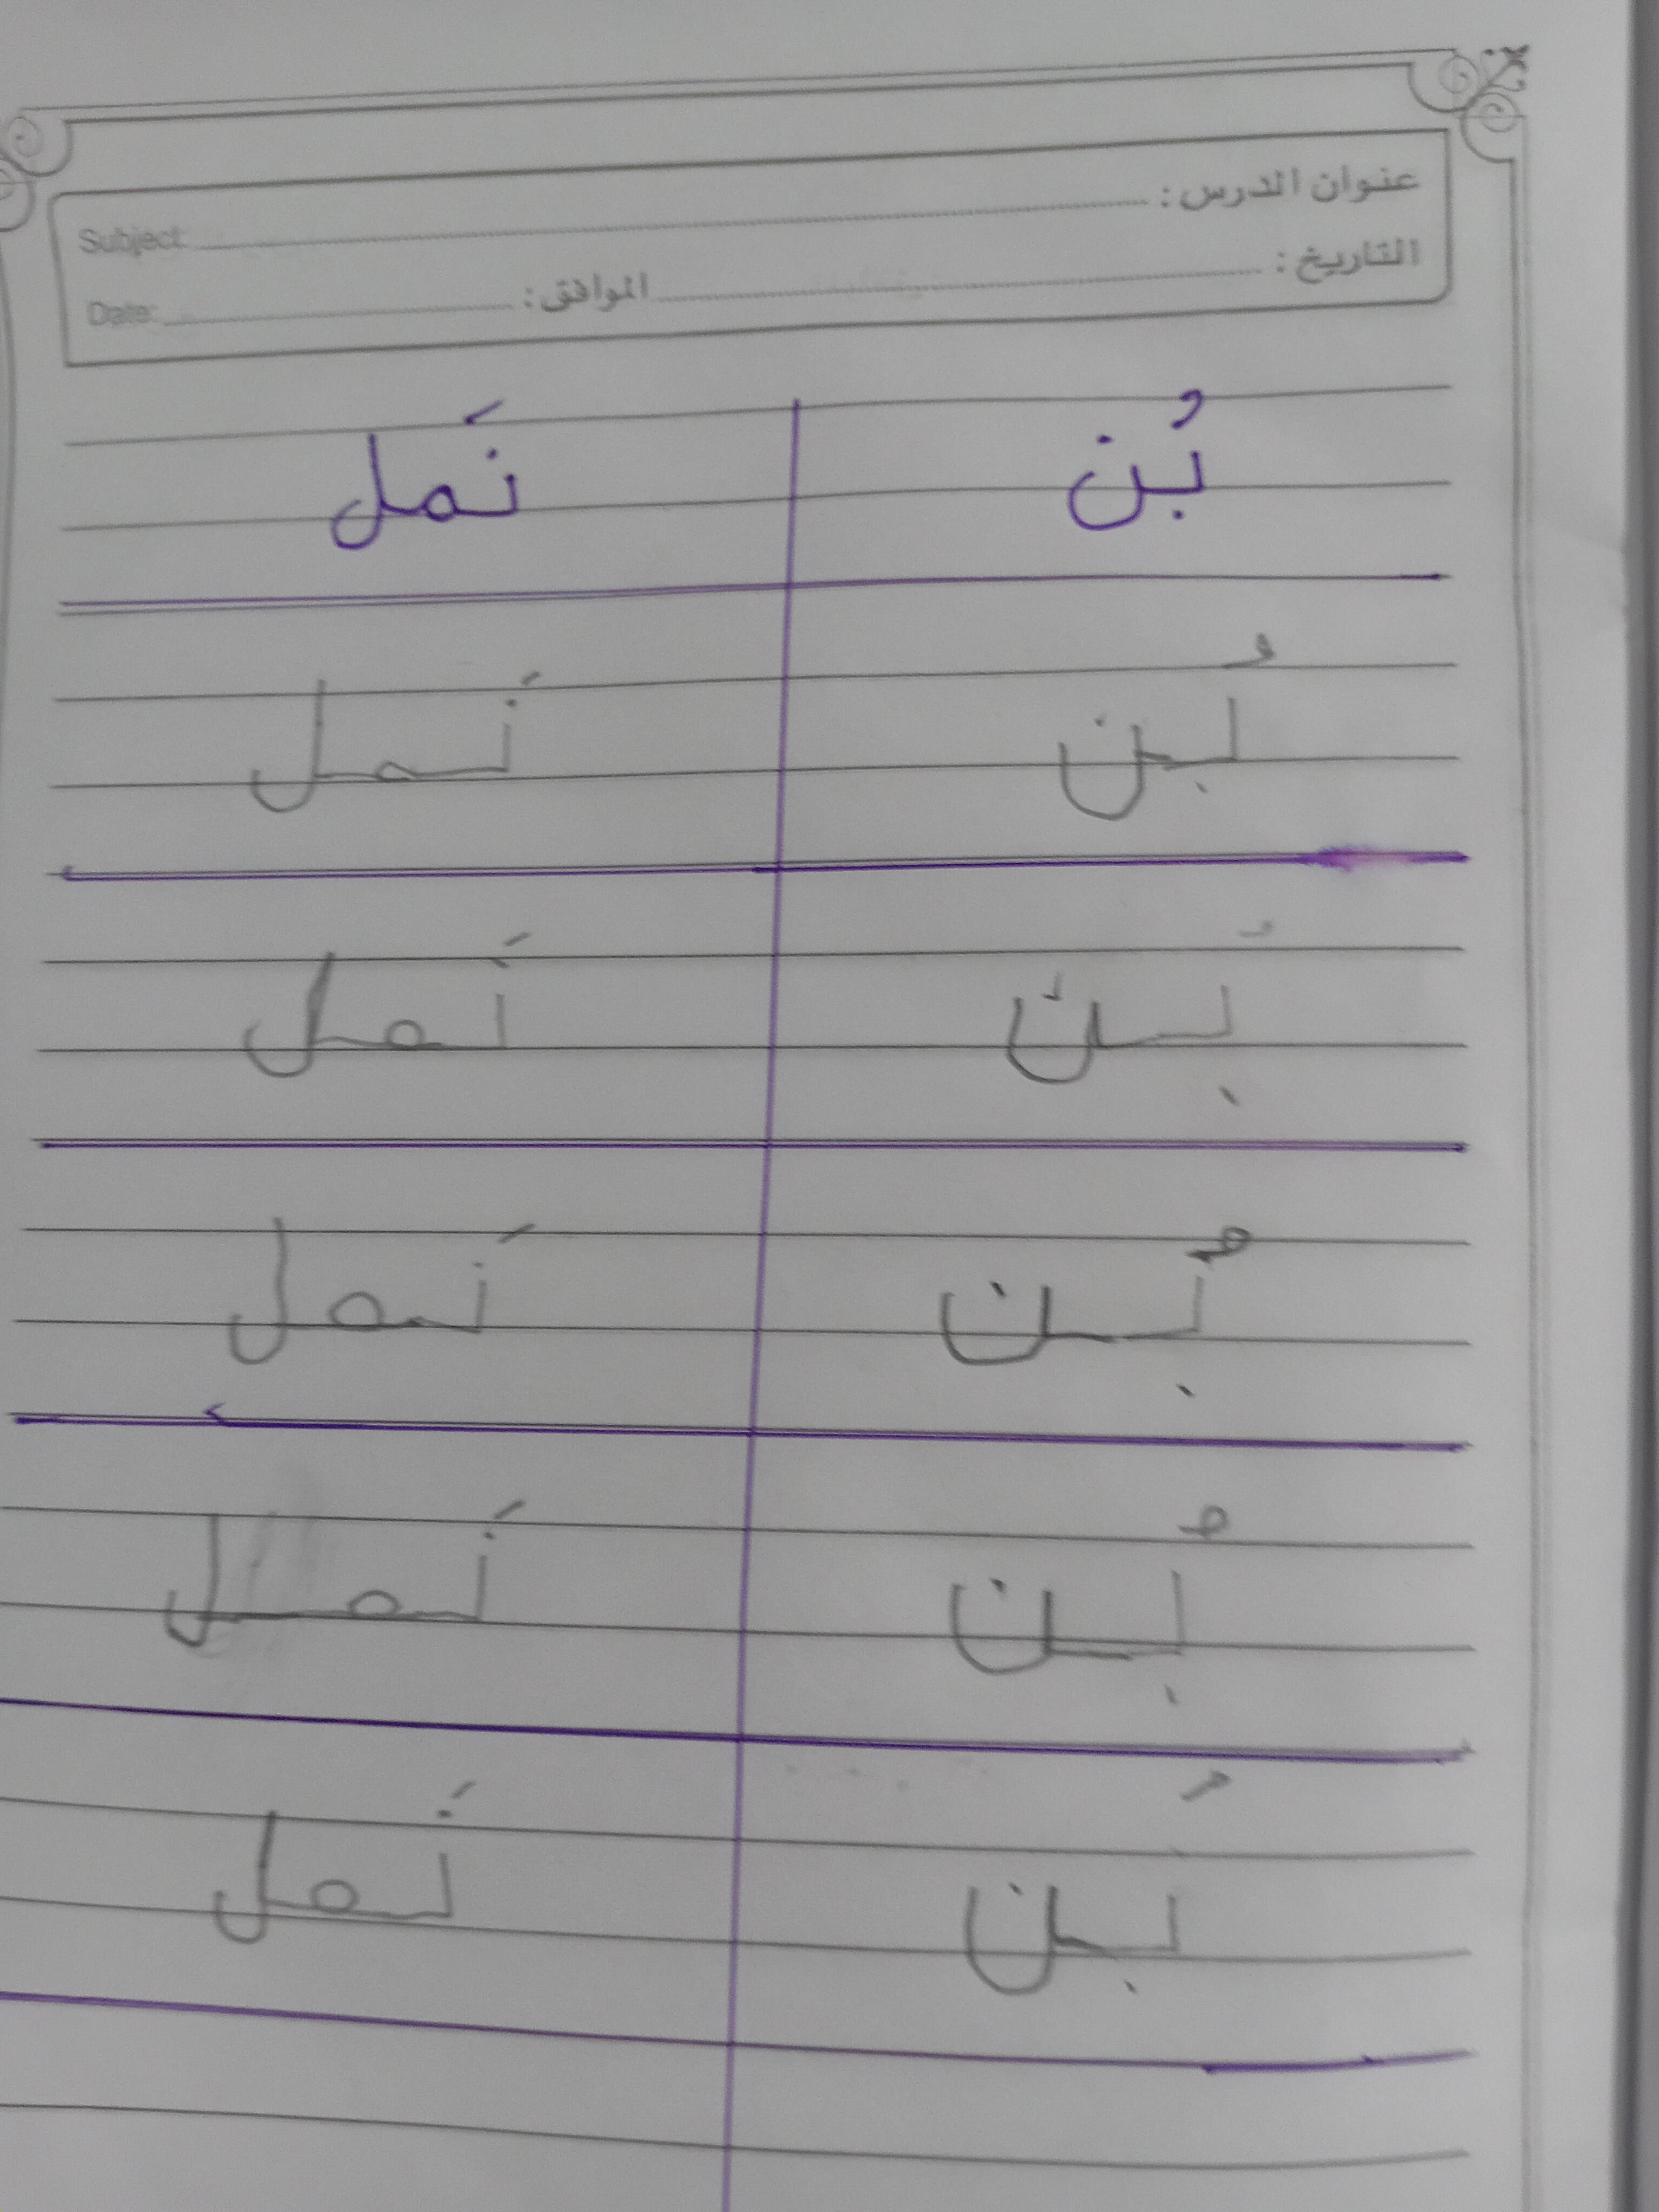 عنوان الدرس : Subject:
التاريخ : الموافق: Date:
بُن نَمل
بُن نَمل
بُن نَمل
بُن نَمل
بُن نَمل
بُن نَمل